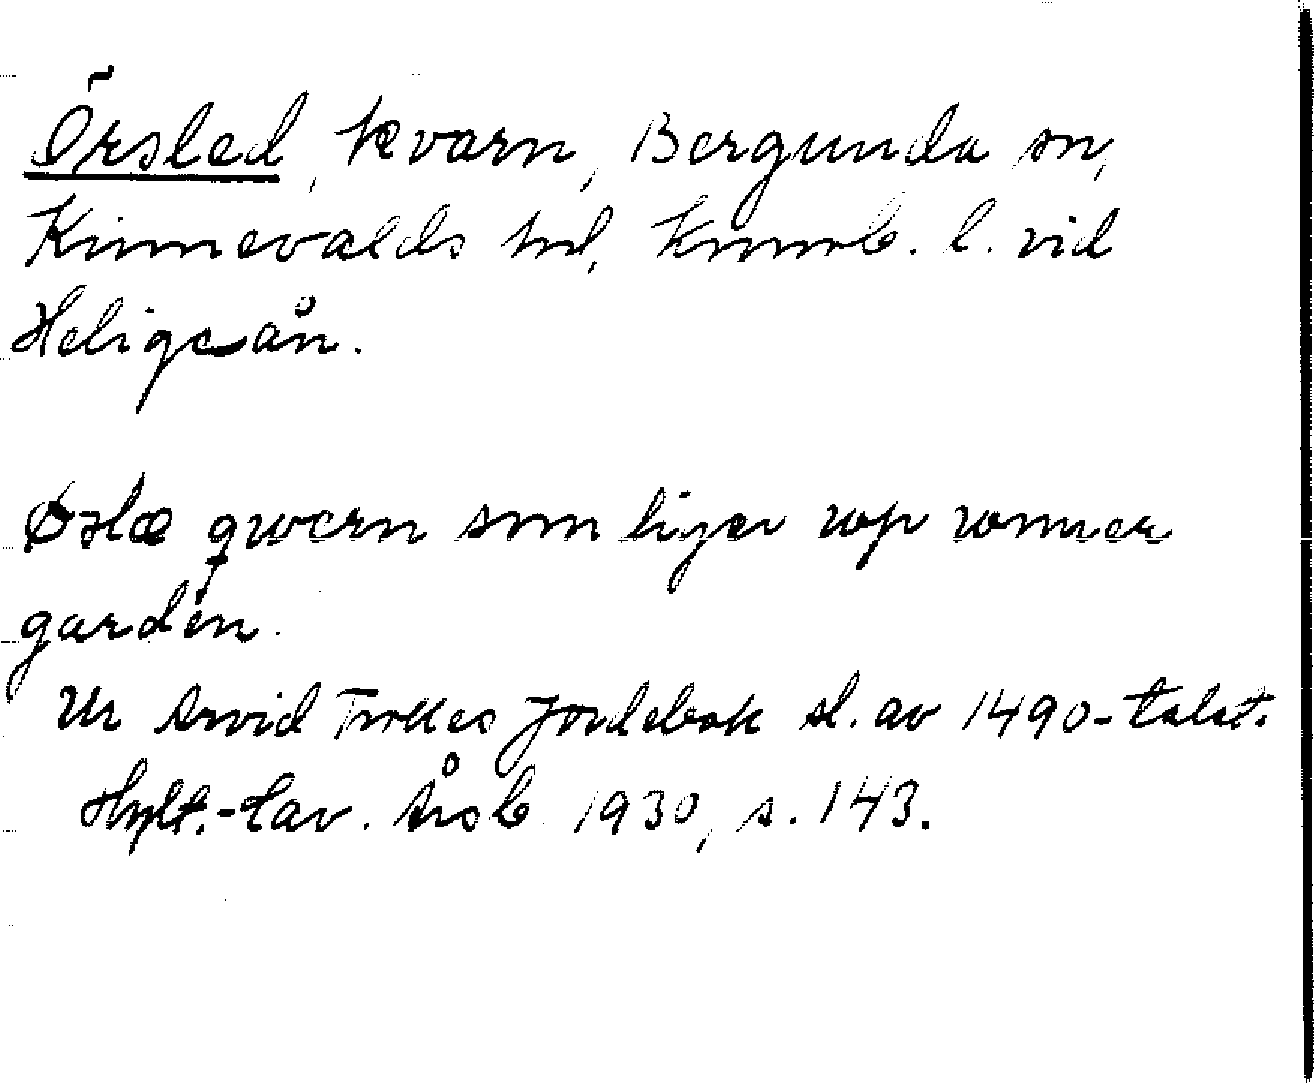 Örsled, kvarn, Bergunda sn,
Kinnevalds hd, Kronob. l. vid
Helige ån.
Øslæ qwern som liger wp wnner
garden.
Ur Arvid Trolles Jordebok sl. av 1490-talet.
Hylt.-Cav. Årsb 1930, s. 143.